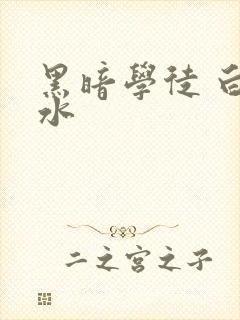 黑暗學徒
水
二之宮之子